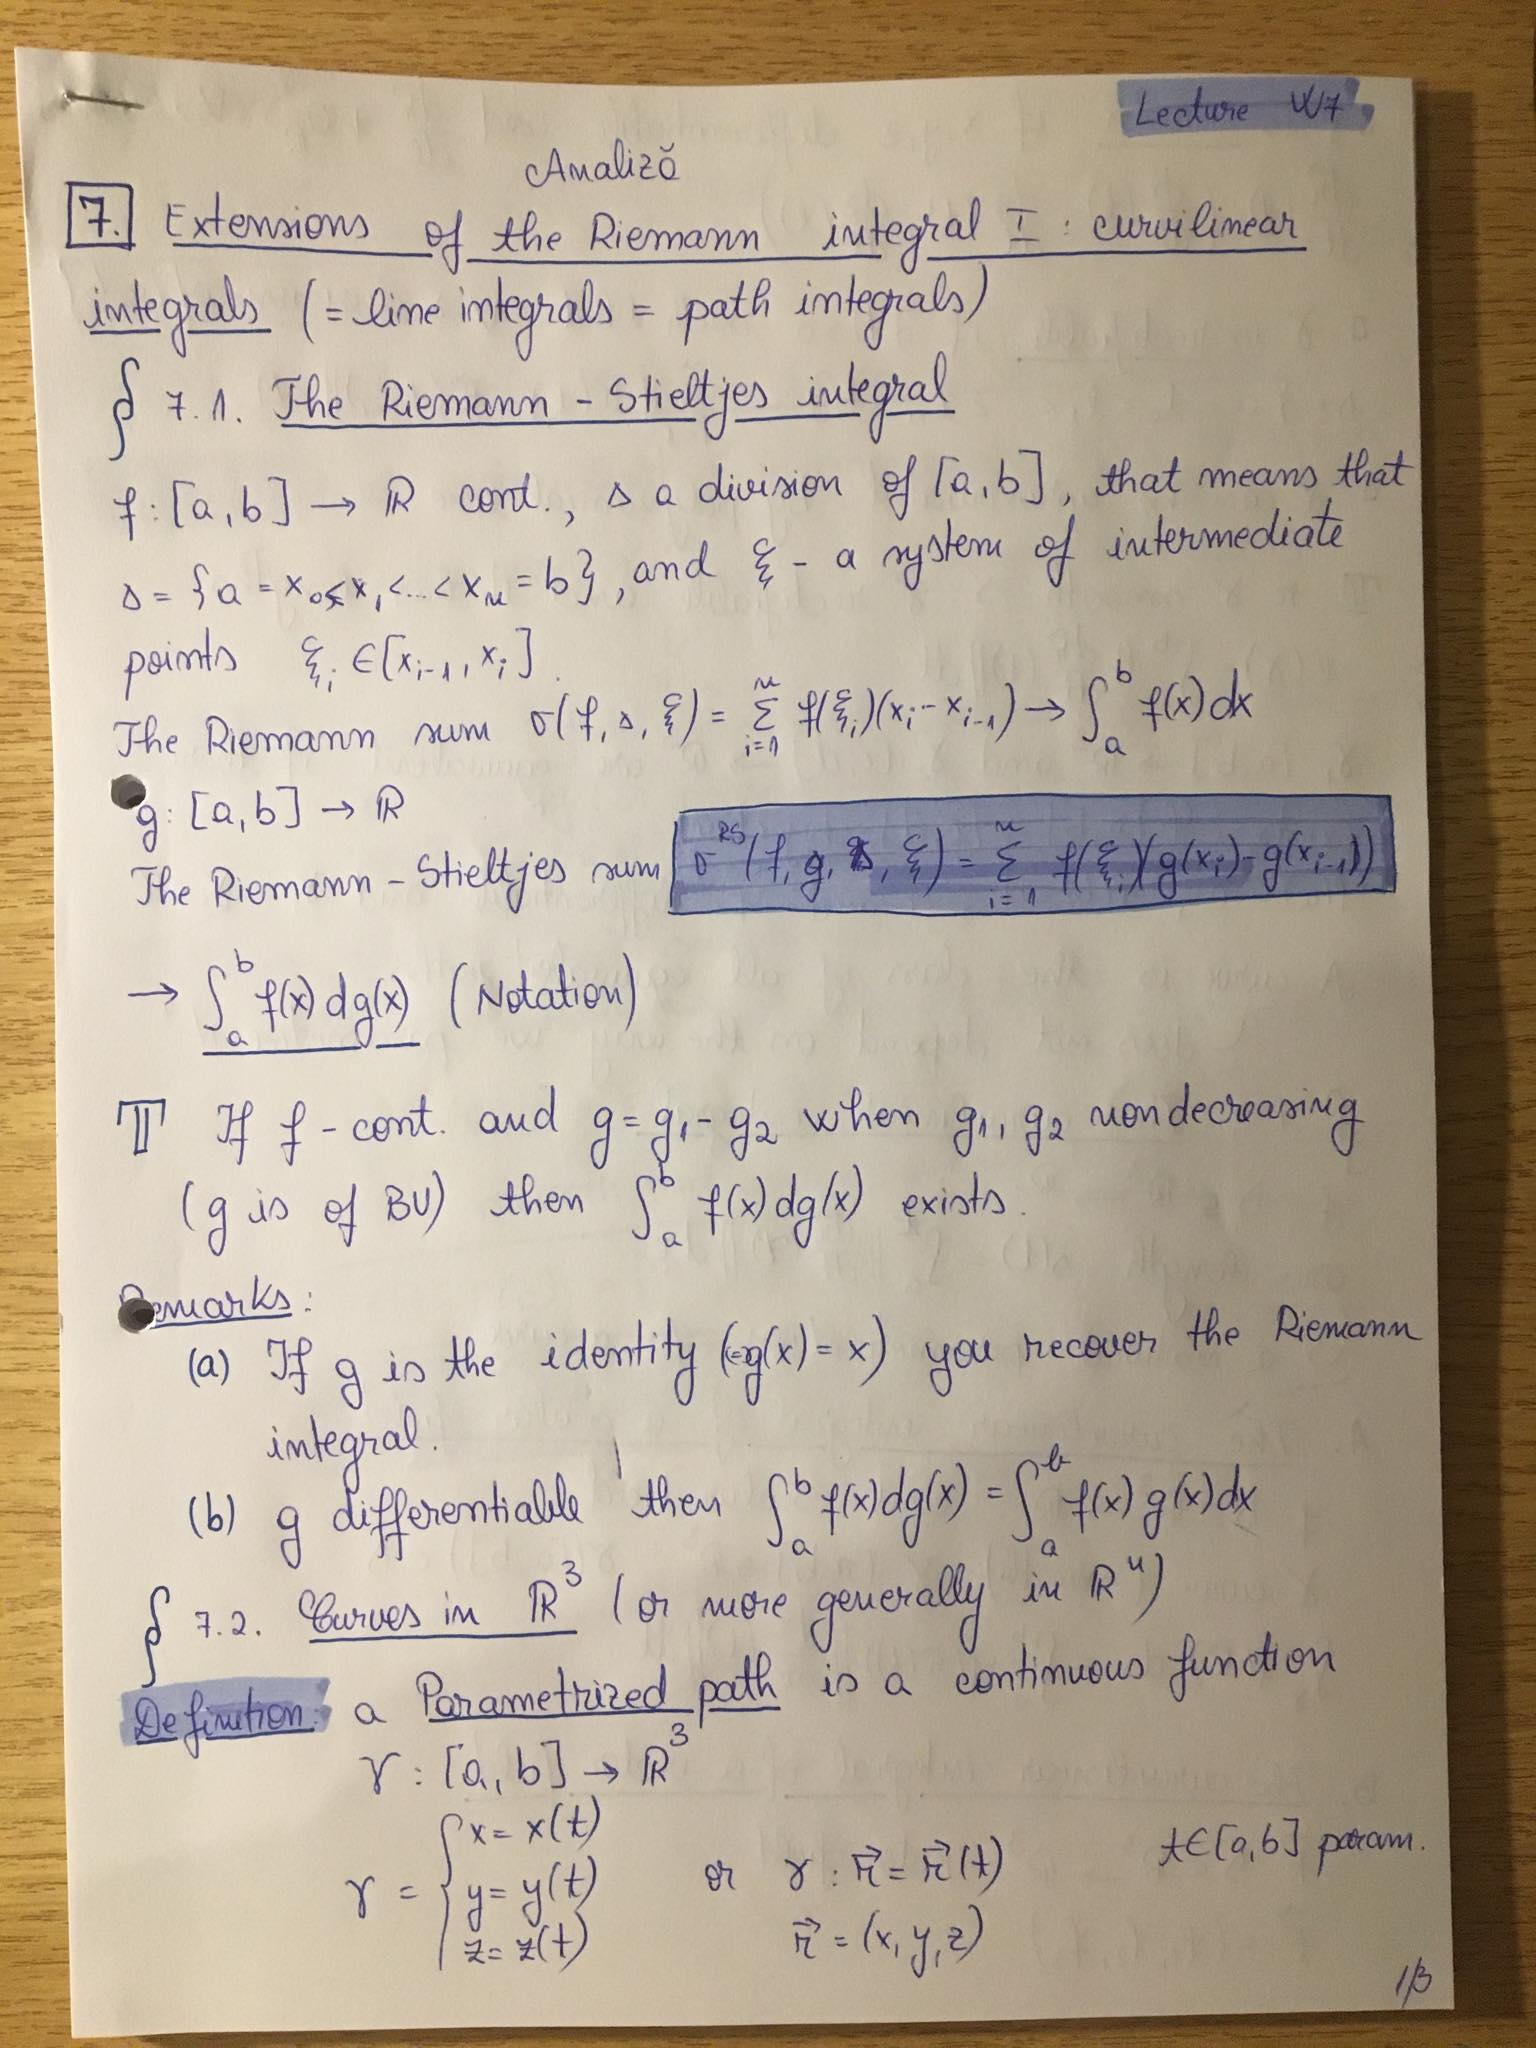 Lecture W7
Analiză
7. Extensions of the Riemann integral I : curvilinear
integrals (= line integrals = path integrals)
§ 7.1. The Riemann - Stieltjes integral
f : [a, b] → ℝ cont., s a division of [a, b], that means that
s = {a = x₀ < x₁ < ... < xₙ = b}, and ξ - a system of intermediate
points ξᵢ ∈ [xᵢ₋₁, xᵢ].
The Riemann sum σ(f, s, ξ) = Σᵢ₌₁ⁿ f(ξᵢ)(xᵢ - xᵢ₋₁) → ∫ₐᵇ f(x) dx
g : [a, b] → ℝ
The Riemann - Stieltjes sum σᴿˢ(f, g, s, ξ) = Σᵢ₌₁ⁿ f(ξᵢ)(g(xᵢ) - g(xᵢ₋₁))
→ ∫ₐᵇ f(x) dg(x) (Notation)
T If f - cont. and g = g₁ - g₂ when g₁, g₂ nondecreasing
(g is of BV) then ∫ₐᵇ f(x) dg(x) exists.
Remarks:
(a) If g is the identity (=g(x) = x) you recover the Riemann
integral.
(b) g differentiable then ∫ₐᵇ f(x) dg(x) = ∫ₐᵇ f(x) g(x) dx
§ 7.2. Curves in ℝ³ (or more generally in ℝⁿ)
Definition: a Parametrized path is a continuous function
γ : [a, b] → ℝ³
γ = { x = x(t)
y = y(t) or γ : r⃗ = r⃗(t) t ∈ [a, b] param.
z = z(t) r⃗ = (x, y, z)
1/3